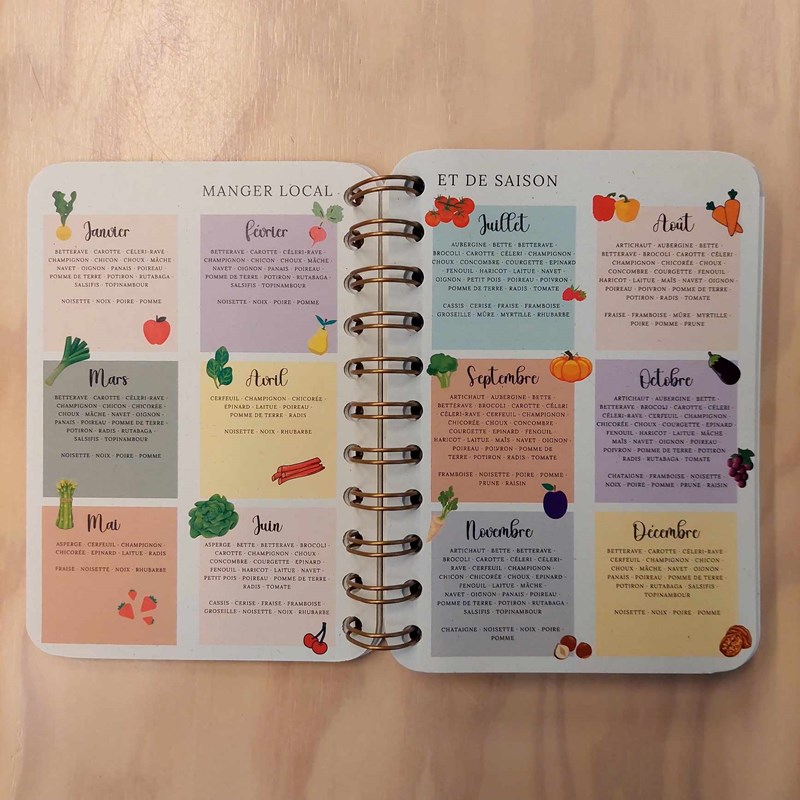 MANGER LOCAL
Janvier
BETTERAVE · CAROTTE · CÉLERI-RAVE ·
CHAMPIGNON · CHICON · CHOUX · MÂCHE
NAVET · OIGNON · PANAIS · POIREAU
POMME DE TERRE · POTIRON · RUTABAGA ·
SALSIFIS · TOPINAMBOUR
NOISETTE · NOIX · POIRE · POMME
Février
BETTERAVE · CAROTTE · CÉLERI-RAVE ·
CHAMPIGNON · CHICON · CHOUX · MÂCHE
NAVET · OIGNON · PANAIS · POIREAU
POMME DE TERRE · POTIRON · RUTABAGA ·
SALSIFIS · TOPINAMBOUR
NOISETTE · NOIX · POIRE · POMME
Mars
BETTERAVE · CAROTTE · CÉLERI-RAVE ·
CHAMPIGNON · CHICON · CHICORÉE ·
CHOUX · MÂCHE · NAVET · OIGNON ·
PANAIS · POIREAU · POMME DE TERRE ·
POTIRON · RADIS · RUTABAGA ·
SALSIFIS · TOPINAMBOUR
NOISETTE · NOIX · POIRE · POMME
Avril
CERFEUIL · CHAMPIGNON · CHICORÉE ·
EPINARD · LAITUE · POIREAU ·
POMME DE TERRE · RADIS
NOISETTE · NOIX · RHUBARBE
Mai
ASPERGE · CERFEUIL · CHAMPIGNON ·
CHICORÉE · EPINARD · LAITUE · RADIS
FRAISE · NOISETTE · NOIX · RHUBARBE
Juin
ASPERGE · BETTE · BETTERAVE · BROCOLI ·
CAROTTE · CHAMPIGNON · CHOUX ·
CONCOMBRE · COURGETTE · EPINARD ·
FENOUIL · HARICOT · LAITUE · NAVET ·
PETIT POIS · POIREAU · POMME DE TERRE
RADIS · TOMATE
CASSIS · CERISE · FRAISE · FRAMBOISE ·
GROSEILLE · NOISETTE · NOIX · RHUBARBE
ET DE SAISON
Juillet
AUBERGINE · BETTE · BETTERAVE ·
BROCOLI · CAROTTE · CÉLERI · CHAMPIGNON ·
CHOUX · CONCOMBRE · COURGETTE · EPINARD
FENOUIL · HARICOT · LAITUE · NAVET ·
OIGNON · PETIT POIS · POIREAU · POIVRON ·
POMME DE TERRE · RADIS · TOMATE
CASSIS · CERISE · FRAISE · FRAMBOISE ·
GROSEILLE · MÛRE · MYRTILLE · RHUBARBE
Août
ARTICHAUT · AUBERGINE · BETTE ·
BETTERAVE · BROCOLI · CAROTTE · CÉLERI ·
CHAMPIGNON · CHICORÉE · CHOUX ·
CONCOMBRE · COURGETTE · FENOUIL ·
HARICOT · LAITUE · MAÏS · NAVET · OIGNON ·
POIREAU · POIVRON · POMME DE TERRE ·
POTIRON · RADIS · TOMATE
FRAISE · FRAMBOISE · MÛRE · MYRTILLE ·
POIRE · POMME · PRUNE
Septembre
ARTICHAUT · AUBERGINE · BETTE ·
BETTERAVE · BROCOLI · CAROTTE · CÉLERI
CÉLERI-RAVE · CERFEUIL · CHAMPIGNON
CHICORÉE · CHOUX · CONCOMBRE ·
COURGETTE · EPINARD · FENOUIL ·
HARICOT · LAITUE · MAÏS · NAVET · OIGNON ·
POIREAU · POIVRON · POMME DE
TERRE · POTIRON · RADIS · TOMATE
FRAMBOISE · NOISETTE · POIRE · POMME ·
PRUNE · RAISIN
Octobre
ARTICHAUT · AUBERGINE · BETTE ·
BETTERAVE · BROCOLI · CAROTTE · CÉLERI
CÉLERI-RAVE · CERFEUIL · CHAMPIGNON ·
CHICORÉE · CHOUX · COURGETTE · EPINARD
FENOUIL · HARICOT · LAITUE · MÂCHE
MAÏS · NAVET · OIGNON · POIREAU ·
POIVRON · POMME DE TERRE · POTIRON
RADIS · RUTABAGA · TOMATE
CHATAIGNE · FRAMBOISE · NOISETTE ·
NOIX · POIRE · POMME · PRUNE · RAISIN
Novembre
ARTICHAUT · BETTE · BETTERAVE ·
BROCOLI · CAROTTE · CÉLERI · CÉLERI-
RAVE · CERFEUIL · CHAMPIGNON ·
CHICON · CHICORÉE · CHOUX · EPINARD ·
FENOUIL · LAITUE · MÂCHE · NAVET ·
OIGNON · PANAIS · POIREAU ·
POMME DE TERRE · POTIRON · RUTABAGA ·
SALSIFIS · TOPINAMBOUR
CHATAIGNE · NOISETTE · NOIX · POIRE ·
POMME
Décembre
BETTERAVE · CAROTTE · CÉLERI-RAVE ·
CERFEUIL · CHAMPIGNON · CHICON ·
CHOUX · MÂCHE · NAVET · OIGNON ·
PANAIS · POIREAU · POMME DE TERRE
POTIRON · RUTABAGA · SALSIFIS ·
TOPINAMBOUR
NOISETTE · NOIX · POIRE · POMME